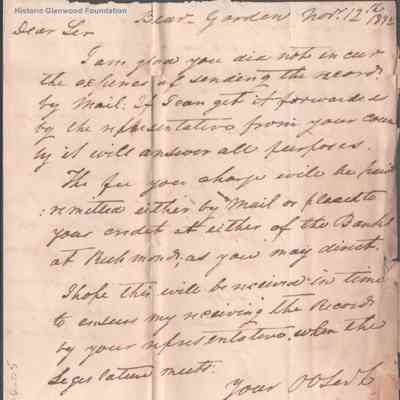 Historic Glenwood Foundation
Bear Garden Novr. 12th 1832
Dear Sir
I am glad you did not incur
the expence of sending the record
by Mail. If I can get it forwarded
by the representative from your coun
ty it will answer all purposes.
The fee you charge will be
remitted either by Mail or placed to
your credit at either of the Banks
at Richmond, as you may direct.
I hope this will be received in time
to ensure my receiving the Record
by your representative, when the
Legislature meets.
Your Ob Servt